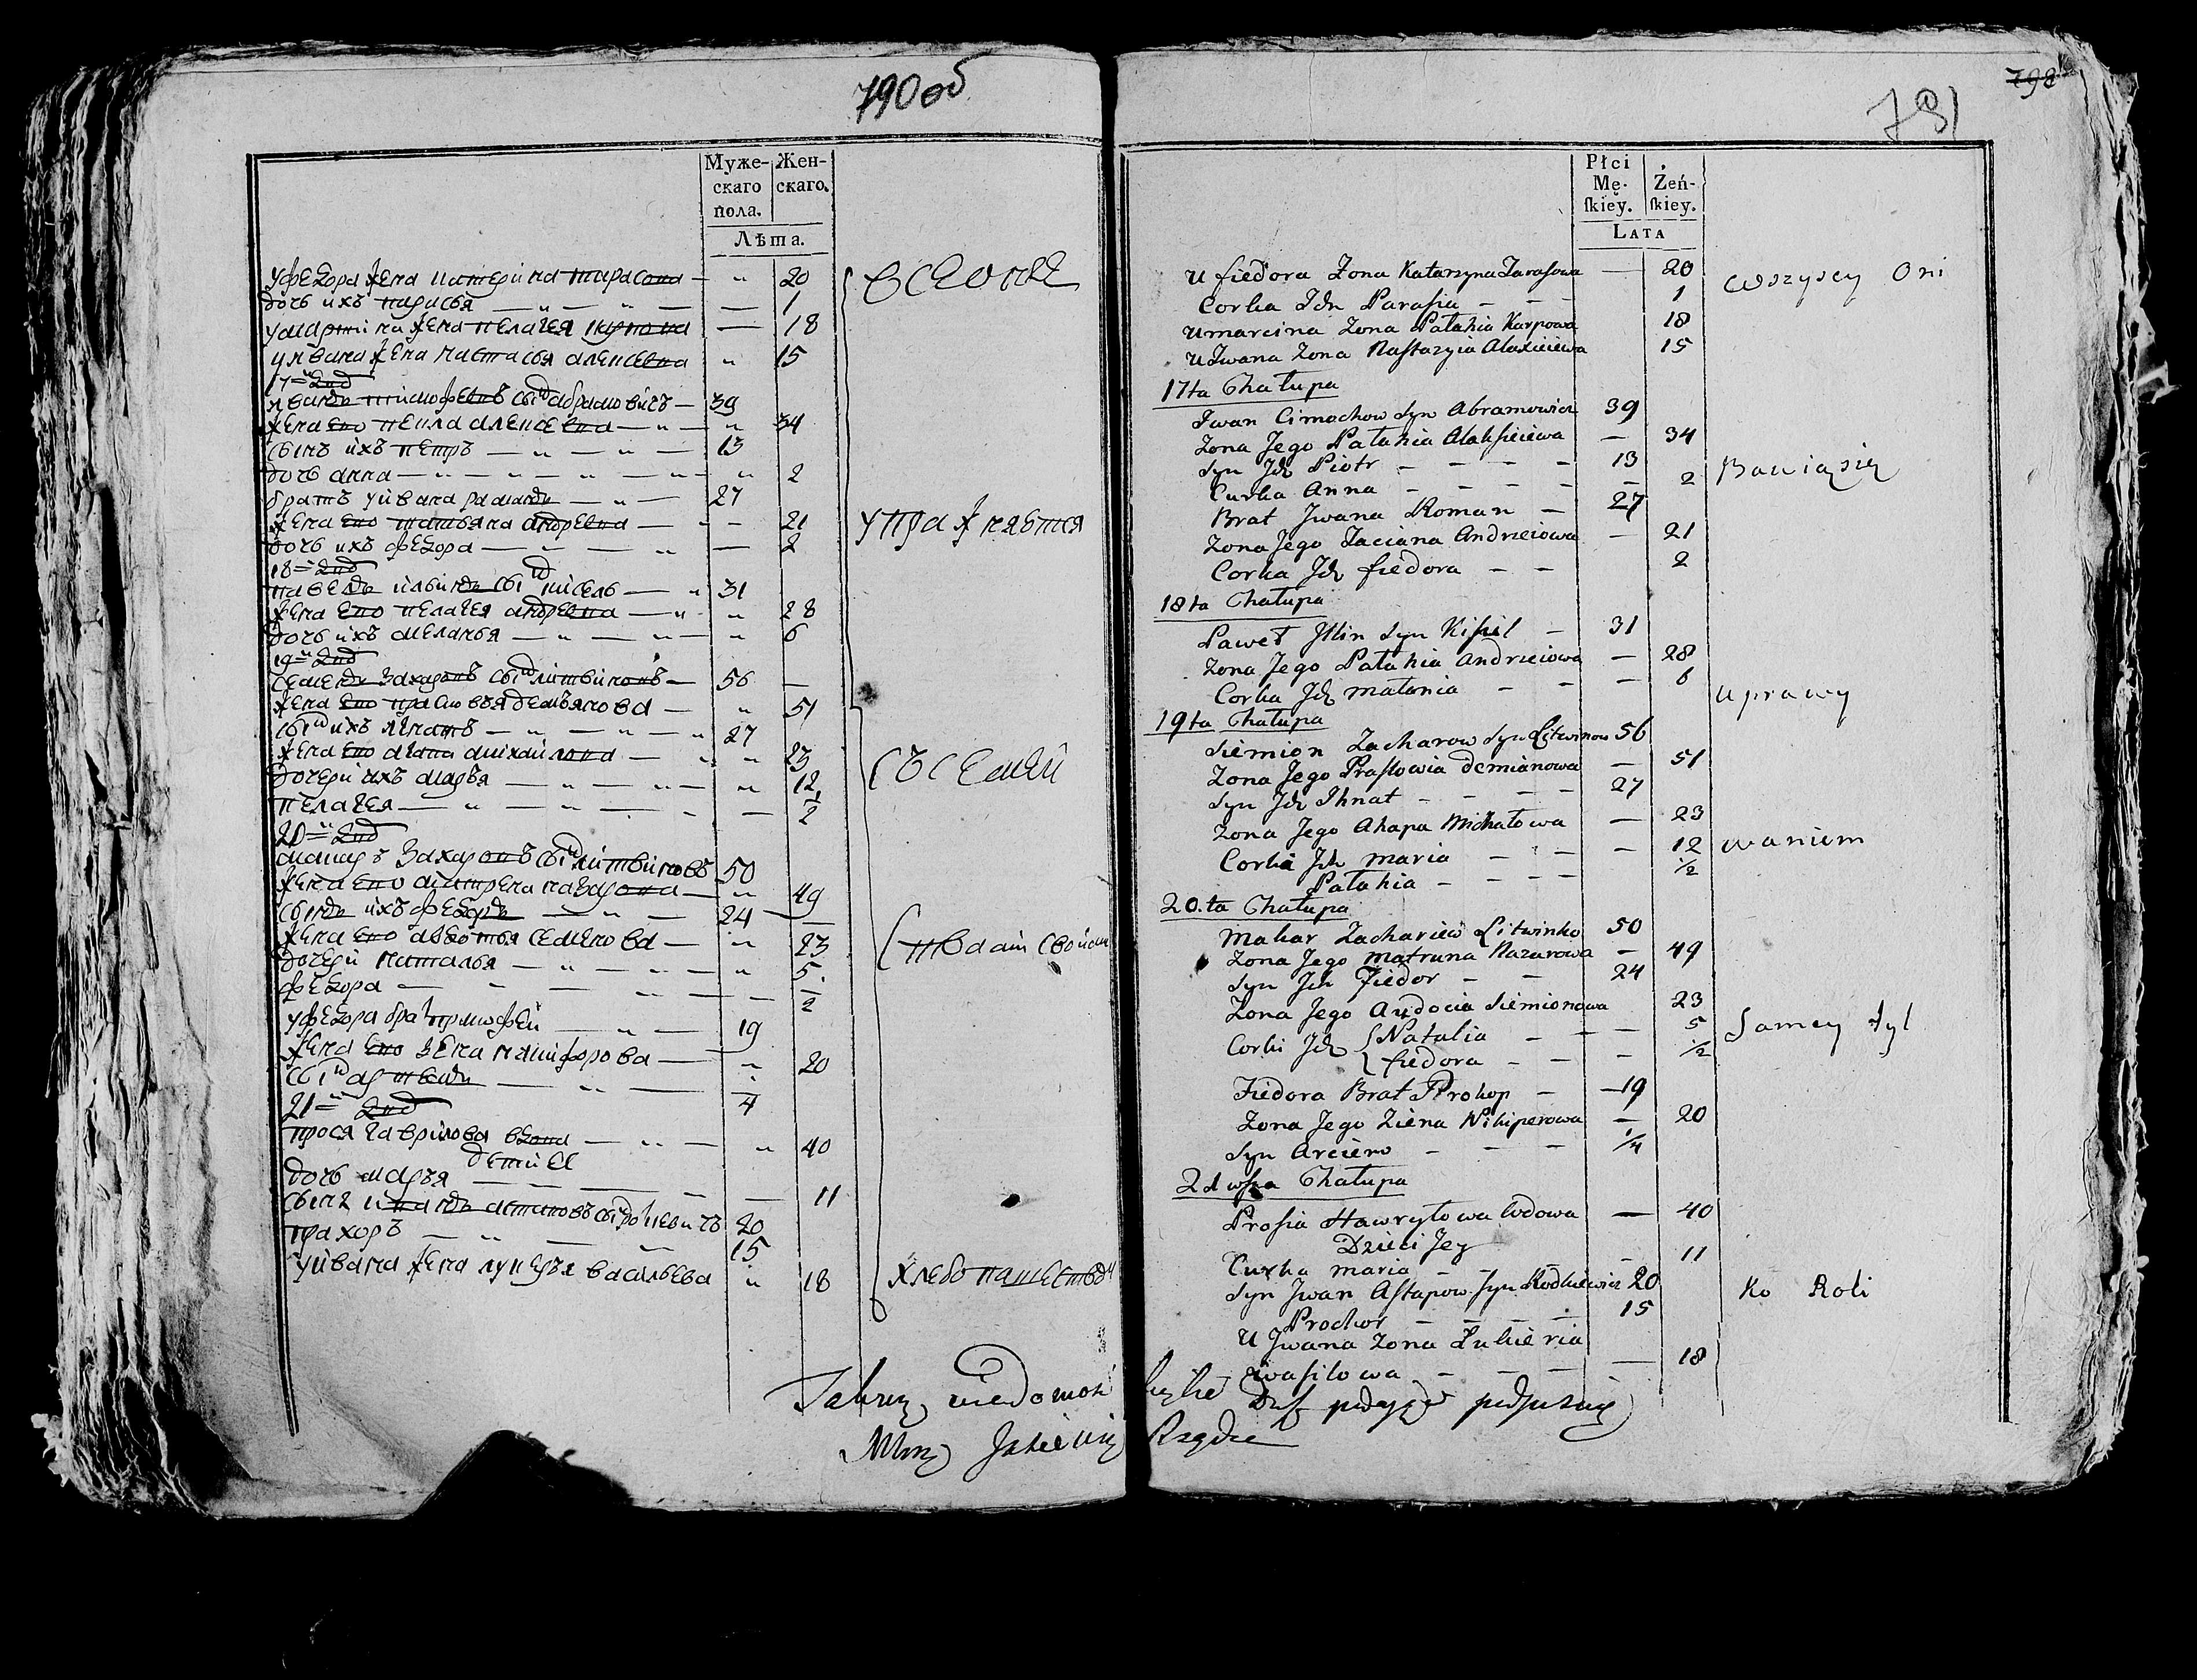 790об
Муже- Жен-
скаго скаго.
пола.
Лѣта.
уфедора жена катерина тарасова — „ 20
дочь ихъ парасья — „ — „ — 1
умартина жена пелагея карпова — 18
уивана жена настасья алексевна „ 15
17й двор
иванъ тимофеевъ сынъ абрамовичъ — 39
жена его пекла алексевна — „ — „ 34
сынъ ихъ петръ — „ — „ — 13
дочь анна — „ — „ — „ — „ 2
братъ уивана романъ — „ — 27
жена его татьяна андревна — „ — 21
дочь ихъ федора — „ — „ — 2
18й двор
павелъ ильинъ сынъ кисель — „ 31
жена его пелагея андревна — „ „ 28
дочь ихъ меланья — „ — „ — „ 6
19й двор
семенъ захаровъ сынъ литвиновъ — 56 —
жена его прасковья демьянова — „ 51
сынъ ихъ игнатъ — „ — „ — „ 27
жена его агапа михайлова — „ „ 23
дочери ихъ марья — „ — „ — „ 12
пелагея — „ — „ — 1/2
20й двор
макаръ захаровъ сынъ литвиновъ 50
жена его матрена назарова — „ 49
сынъ ихъ федоръ — „ — 24 —
жена его авдотья семенова — „ 23
дочери наталья — „ — „ — „ 5
федора — „ — „ — 1/2
уфедора братъ — „ — 19
жена его зена никифорова — „ 20
сынъ артемъ — „ — 1/4
21й двор
прося гаврилова вдова — „ — „ 40
дети ее
дочь марья — — — 11
сынъ иванъ астаповъ сынъ 20
прахоръ — „ — „ 15
уивана жена лукерья васильева „ 18
все они
упражняется
съ семей
ствами своими
хлебопашествомъ
791
798
Płci Żeń-
Mę- ſkiey.
ſkiey.
LATA
u fiedora Zona Katarzyna Tarasowa — 20
Corka Ich Parasia — — — 1
u marcina Zona Pałahia Karpowa 18
u Iwana Zona Nastazyia Alaxieiewa 15
17ta Chałupa
Iwan Cimochow Syn Abramowicz 39
Zona Jego Pałahia Alaksieiewa — 34
Syn Ich Piotr — — — — 13
Curka Anna — — — — — 2
Brat Jwana Roman — 27
Zona Jego Taciana Andrzeiowa — 21
Corka Ich fiedora — — 2
18ta Chałupa
Paweł Jllin Syn Kisiel — 31
Zona Jego Pałahia Andrzeiowa — 28
Corka Ich małania — — — 6
19ta Chałupa
Siemion Zacharow Syn Litwinow 56
Zona Jego Prastowia demianowa — 51
Syn Ich Ihnat — — — — 27
Zona Jego Ahapa Michałowa — 23
Corki Ich maria — — — 12
Pałahia — — — — 1/2
20.ta Chałupa
Makar Zachariew Litwinko 50
Zona Jego Matruna Nazarowa — 49
Syn Ich Fiedor — — 24
Zona Jego Audocia Siemionowa 23
Corki Ich { Natalia — — — 5
{ fiedora — — — 1/2
Fiedora Brat Prokop — — 19
Zona Jego Ziena Nikiperowa — 20
Syn Arciem — — — 1/4
21wsza Chałupa
Prosia Hawryłowa wdowa — 40
Dzieci Jey
Curka maria — — — — 11
Syn Jwan Astapow Syn Rodkiewicz 20
Prochor — — — — 15
U Jwana Zona Łukieria
wasilowa — — — — 18
wszyscy Oni
Bawią się
uprawy
waniem
Samey tyl
ko Roli
Takową wiadomość liczbie Dusz podaiąc podpisuię